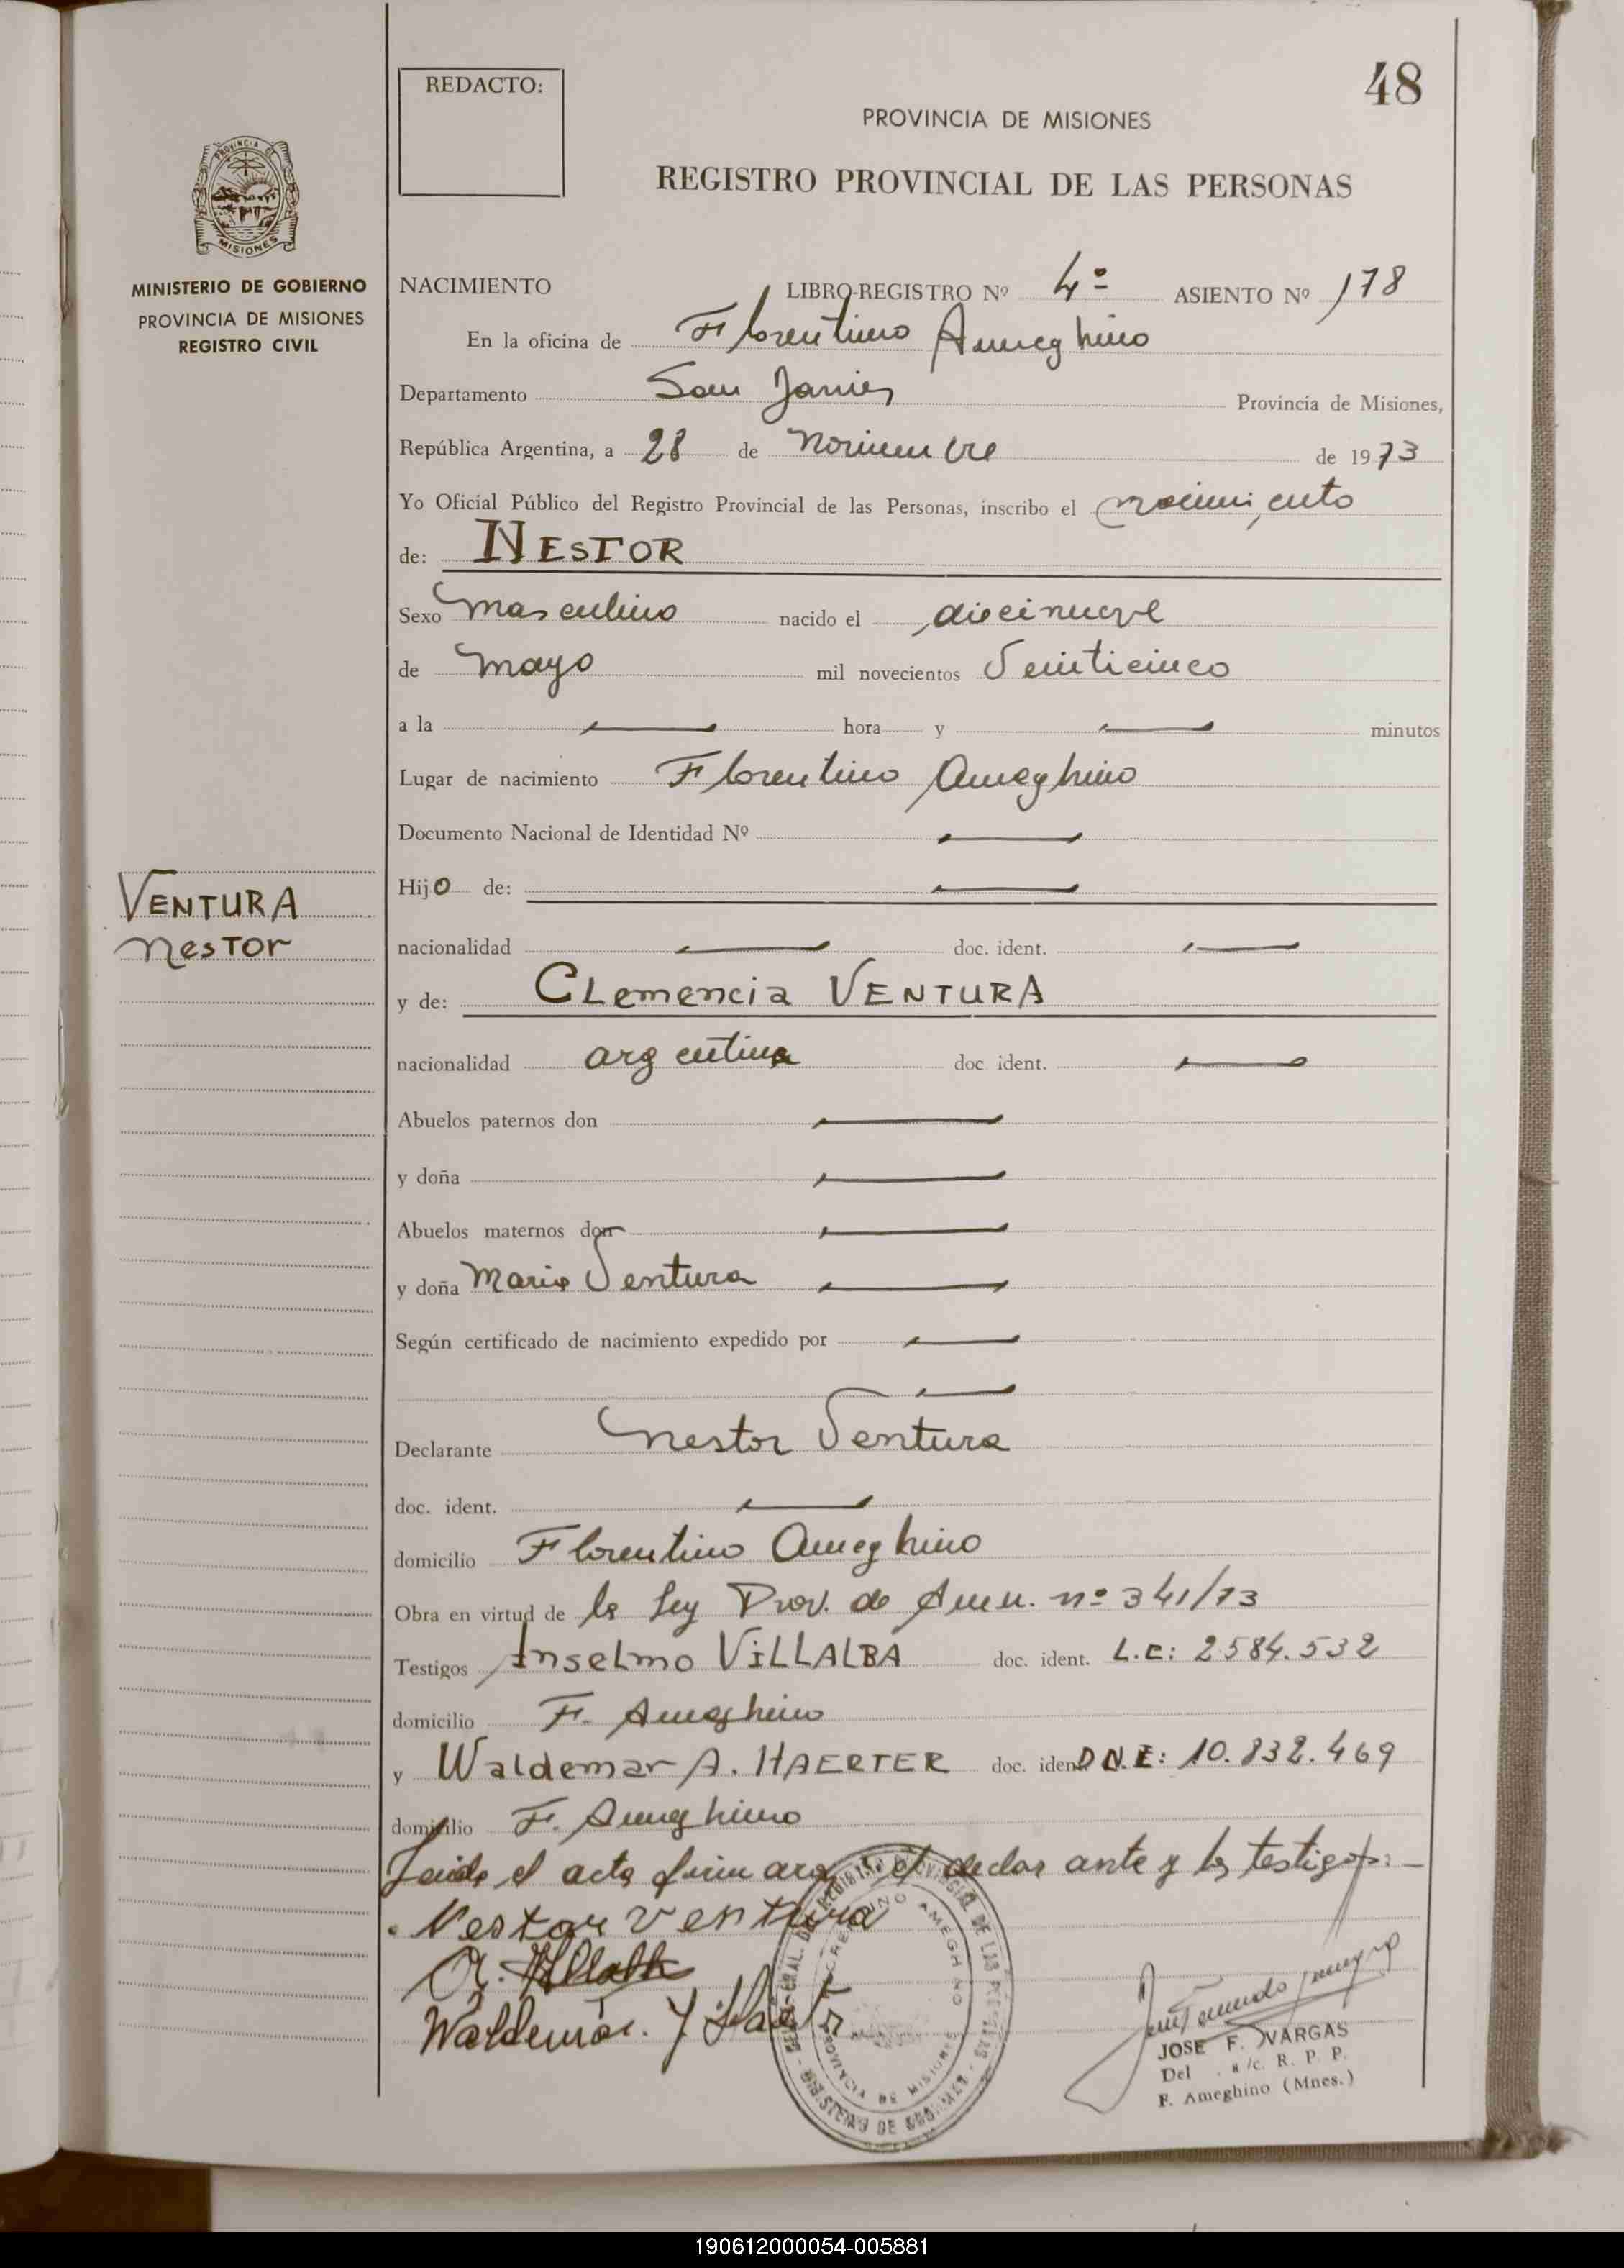 48
REDACTO:
PROVINCIA DE MISIONES
REGISTRO PROVINCIAL DE LAS PERSONAS
PROVINCIA DE
MISIONES
MINISTERIO DE GOBIERNO
PROVINCIA DE MISIONES
REGISTRO CIVIL
NACIMIENTO LIBRO-REGISTRO Nº 4º ASIENTO Nº 178
En la oficina de Florentino Ameghino
Departamento San Javier Provincia de Misiones,
República Argentina, a 28 de noviembre de 1973
Yo Oficial Público del Registro Provincial de las Personas, inscribo el nacimiento
de: NESTOR
Sexo masculino nacido el diecinueve
de mayo mil novecientos Veinticinco
a la — hora y — minutos
Lugar de nacimiento Florentino Ameghino
Documento Nacional de Identidad Nº —
VENTURA
Nestor
Hijo de: —
nacionalidad — doc. ident. —
y de: Clemencia VENTURA
nacionalidad argentina doc. ident. —
Abuelos paternos don —
y doña —
Abuelos maternos don —
y doña Maria Ventura —
Según certificado de nacimiento expedido por —
—
Declarante Nestor Ventura
doc. ident. —
domicilio Florentino Ameghino
Obra en virtud de la Ley Prov. de Amn. nº 341/73
Testigos Anselmo VILLALBA doc. ident. L.E: 2584.532
domicilio F. Ameghino
y Waldemar A. HAERTER doc. ident. D.N.I: 10.832.469
domicilio F. Ameghino
Leida el acta firman el declarante y los testigos.—
Nestor Ventura
A. Villalba
Waldemar
JOSE F. VARGAS
Del /c. R. P. P.
F. Ameghino (Mnes.)
190612000054-005881